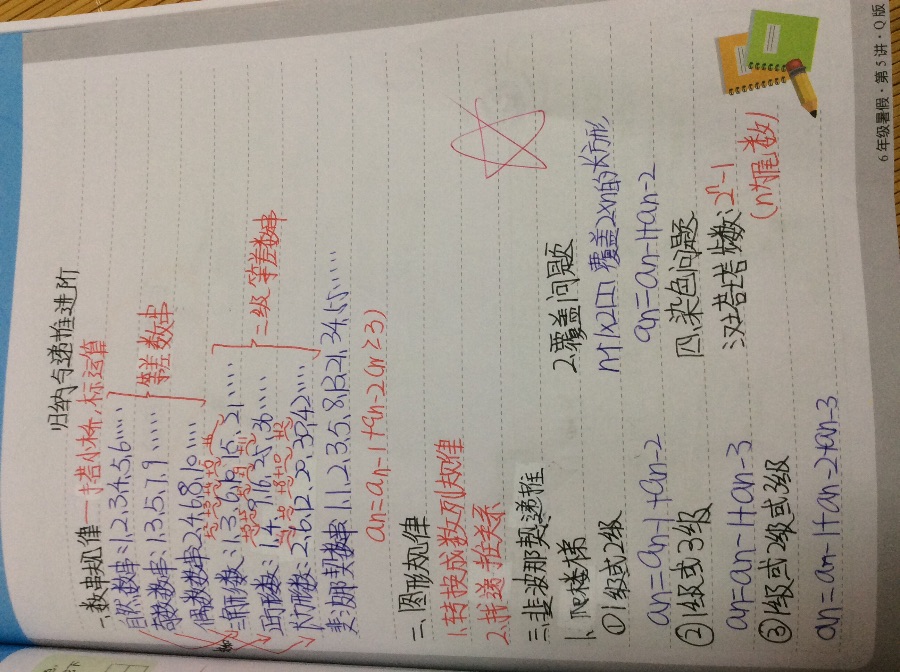 归纳与递推进阶
一、数串规律—搭小桥,标运算
自然数串:1,2,3,4,5,6……
奇数数串:1,3,5,7,9……
偶数数串2,4,6,8,10……
等差数串
三角形数:1,3,6,10,15,21……
正方形数:1,4,9,16,25,36……
长方形数:2,6,12,20,30,42……
二级等差数串
斐波那契数串1,1,2,3,5,8,13,21,34,55……
an=an-1+an-2(n≥3)
二、图形规律
1.转换成数列规律
2.找递推关系
三、斐波那契递推
1、爬楼梯
①1级或2级
an=an-1+an-2
②1级或3级
an=an-1+an-3
③1级或2级或3级
an=an-1+an-2+an-3
2.覆盖问题
用1×2的 覆盖2×n的长方形
an=an-1+an-2
四、染色问题
汉诺塔次数:2ⁿ-1
(n为层数)
6年级暑假·第5讲·Q版